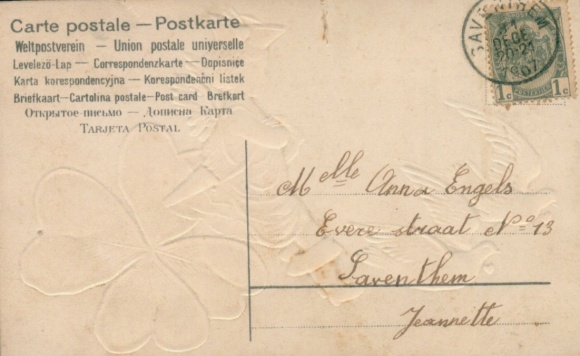 Carte postale — Postkarte
Weltpostverein — Union postale universelle
Levelező-Lap — Correspondenzkarte — Dopisnice
Karta korespondencyjna — Korespondenční listek
Briefkaart — Cartolina postale — Post card Brefkort
Открытое письмо — Дописна Карта
Tarjeta Postal
SAVENTHEM
DECE
20-21
1907
1c 1c
Mlle Anna Engels
Evere straat No 13
Saventhem
Jeannette